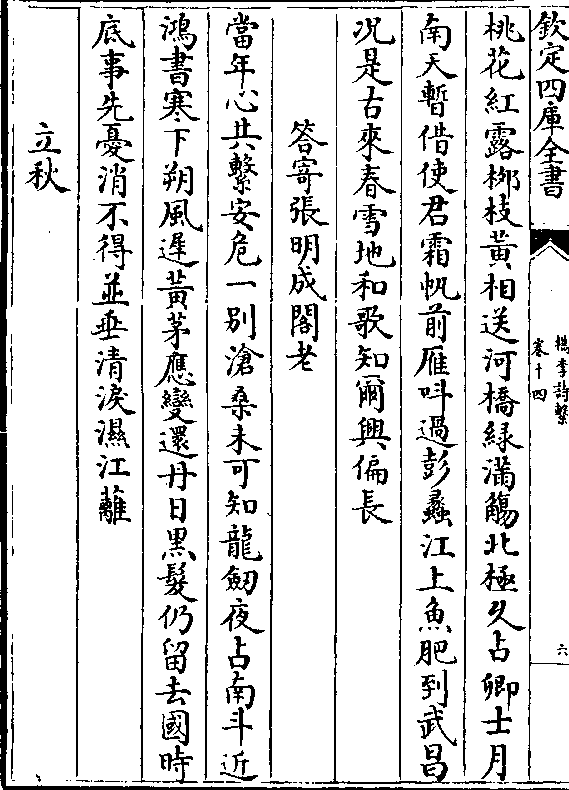 欽定四庫全書
檇李詩繫
卷十四
六
桃花紅露柳枝黃相送河橋緑滿觴北極久占卿士月
南天暫借使君霜帆前雁呌過彭蠡江上魚肥到武昌
况是古來春雪地和歌知爾興偏長
答寄張明成閣老
當年心共繫安危一別滄桑未可知龍劒夜占南斗近
鴻書寒下朔風遲黃茅應變還丹日黒髮仍留去國時
底事先憂消不得並垂清淚濕江蘺
立秋